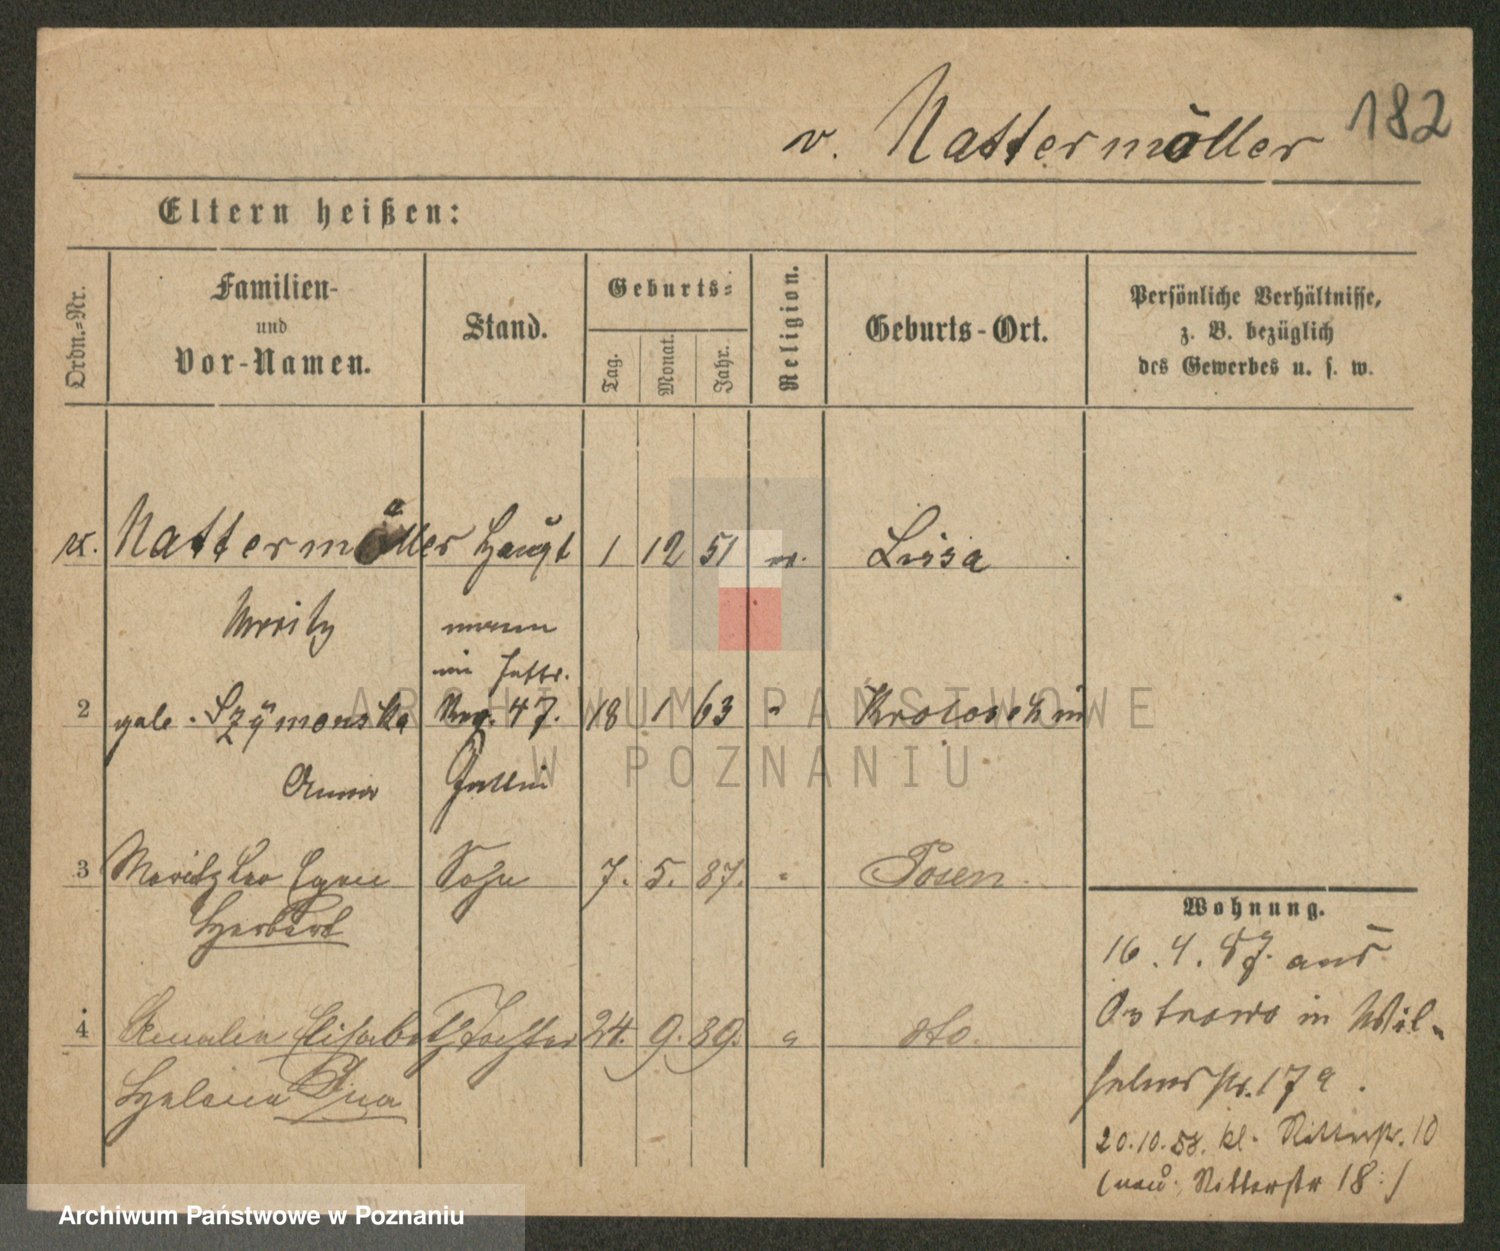 182
v. Nattermöller
Eltern heißen:
Ordn.-Nr.
Familien-
und
Vor-Namen.
Stand.
Geburts-
Tag.
Monat.
Jahr.
Religion.
Geburts-Ort.
Persönliche Verhältnisse,
z. B. bezüglich
des Gewerbes u. s. w.
v. Nattermöller Haupt 1 12 51 Lissa
Moritz mann
im Inftr.
2 geb. Szymonska Reg. 47. 18 1 63 " Krotoschin
Anna Gattin
3 Moritz Leo Egon Sohn 7. 5. 87. " Posen
Herbert
4 Amalie Elisabeth Tochter 24. 9. 89. " dto.
Helene Ina
Wohnung.
16. 4. 87. aus
Ostrowo in Wil-
helmstr. 17a.
20.10.88. kl. Ritterstr. 10
(neu: Ritterstr 18:)
ARCHIWUM PAŃSTWOWE
W POZNANIU
Archiwum Państwowe w Poznaniu